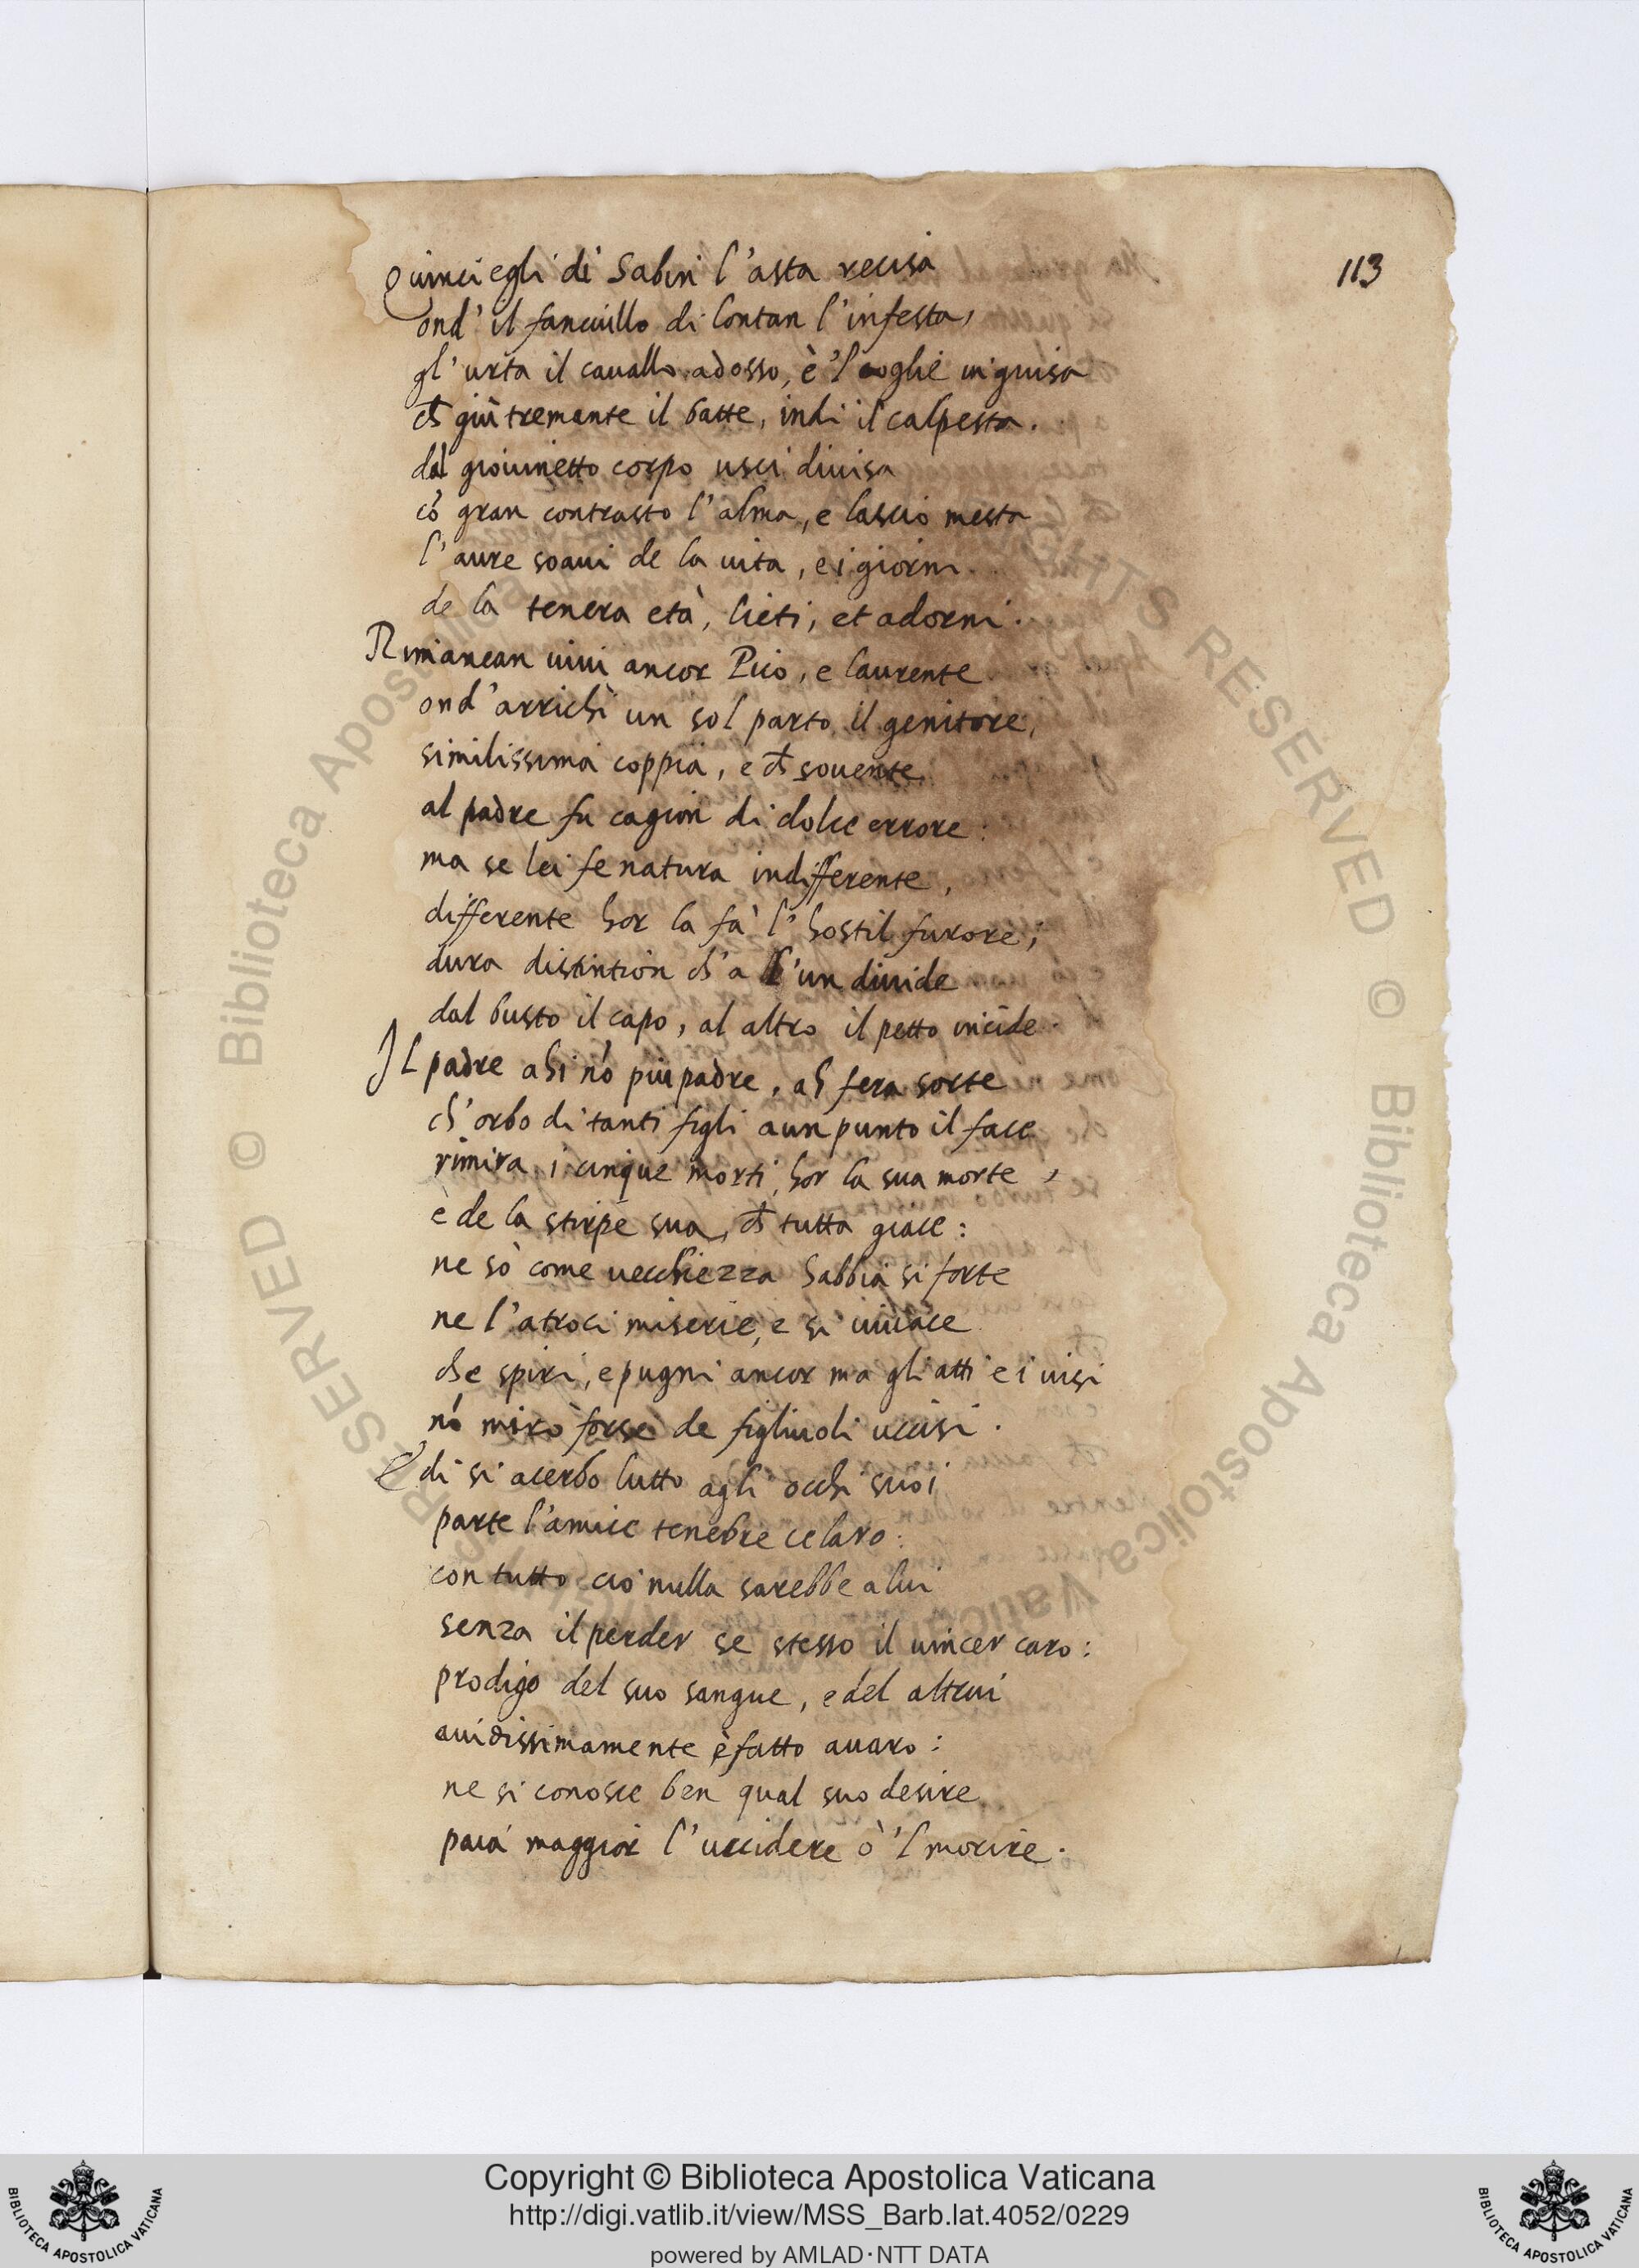 113
Quinci egli di Sabin l'asta recisa
ond' il fanciullo di lontan l'infesta,
gl'urta il cauallo adosso, è 'l coglie in guisa
ch giù tremante il batte, indi il calpesta.
dal giouinetto corpo usci diuisa
cō gran contrasto l'alma, e lasciò mesta
l'aure soaui de la uita, e i giorni
de la tenera età, lieti, et adorni.
Rimanean uiui ancor Pico, e laurente
ond'arrichì un sol parto il genitore,
similissima coppia, e ch souente
al padre fu cagion di dolce errore:
ma se lei fe natura indifferente,
differente hor la fà l'hostil furore;
dura distintion ch'a l'un diuide
dal busto il capo, al altro il petto incide.
Il padre ahi nō più padre, ah fera sorte
ch'orbo di tanti figli a un punto il face
rimira i cinque morti hor la sua morte,
e de la stirpe sua, ch tutta giace:
ne sò come uecchiezza habbia si forte
ne l'atroci miserie, e si uiuace
che spiri, e pugni ancor ma gli atti e i uisi
nō mirò forse de figliuoli uccisi.
E di si acerbo lutto agli occhi suoi
parte l'amice tenebre celaro:
con tutto ciò nulla sarebbe a lui
senza il perder se stesso il uincer caro:
prodigo del suo sangue, e del altrui
auidissimamente è fatto auaro:
ne si conosce ben qual suo desire
paia maggior l'uccidere ò 'l morire.
RIGHTS RESERVED © Biblioteca Apostolica Vaticana
RIGHTS RESERVED © Biblioteca Apostolica Vaticana
Copyright © Biblioteca Apostolica Vaticana
http://digi.vatlib.it/view/MSS_Barb.lat.4052/0229
powered by AMLAD·NTT DATA
BIBLIOTECA APOSTOLICA VATICANA
BIBLIOTECA APOSTOLICA VATICANA